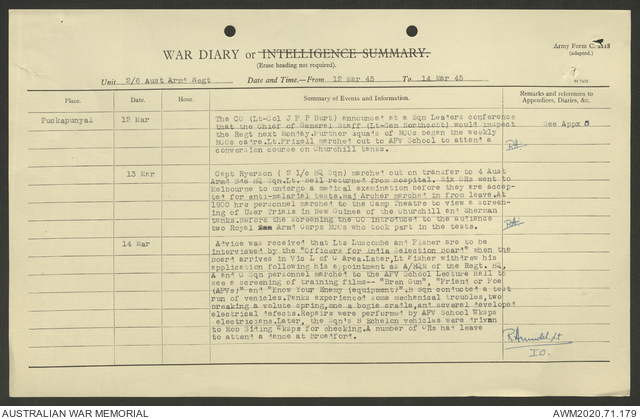 Army Form C. 2118
(adapted.)
WAR DIARY or INTELLIGENCE SUMMARY.
(Erase heading not required).
Unit 2/6 Aust Armd Regt Date and Time.—From 12 Mar 45 To 14 Mar 45
Place. Date. Hour. Summary of Events and Information. Remarks and references to Appendices, Diaries, &c.
Puckapunyal 12 Mar The CO (Lt-Col J F P Burt) announced at a Sqn Leaders conference
that the Chief of General Staff (Lt-Gen Northcott) would inspect See Appx 8
the Regt next Monday. Further squads of NCOs began the weekly
NCOs cadre. Lt. Frizell marched out to AFV School to attend a
conversion course on Churchill tanks.
13 Mar Capt Ryerson ( 2 i/c HQ Sqn) marched out on transfer to 4 Aust
Armd Bde HQ Sqn. Lt. Bell returned from hospital. Six ORs went to
Melbourne to undergo a medical examination before they are accep-
ted for anti-malarial tests. Maj Archer marched in from leave. At
1900 hrs personnel marched to the Camp Theatre to view a screen-
ing of User Trials in New Guinea of the Churchill and Sherman
tanks. Before the screening the CO introduced to the audience
two Royal Armd Corps NCOs who took part in the tests.
14 Mar Advice was received that Lts Luscombe and Fisher are to be
interviewed by the "Officers for India Selection Board" when the
board arrives in Vic L of C Area. Later, Lt Fisher withdrew his
application following his appointment as A/QMs of the Regt. HQ,
A and C Sqn personnel marched to the AFV School Lecture Hall to
see a screening of training films-- "Bren Gun", "Frient or Foe
(AFVs)" and "Know Your Enemy (equipment)". B Sqn conducted a test
run of vehicles. Tanks experienced some mechanical troubles, two
breaking a volute spring, one a bogie cradle, and several developed
electrical defects. Repairs were performed by AFV School Wksps
electricians. Later, the Sqn's B Echelon vehicles were driven
to Mob Siding Wksps for checking. A number of ORs had leave
to attend a dance at Broadford.
Lt
IO.
AUSTRALIAN WAR MEMORIAL AWM2020.71.179